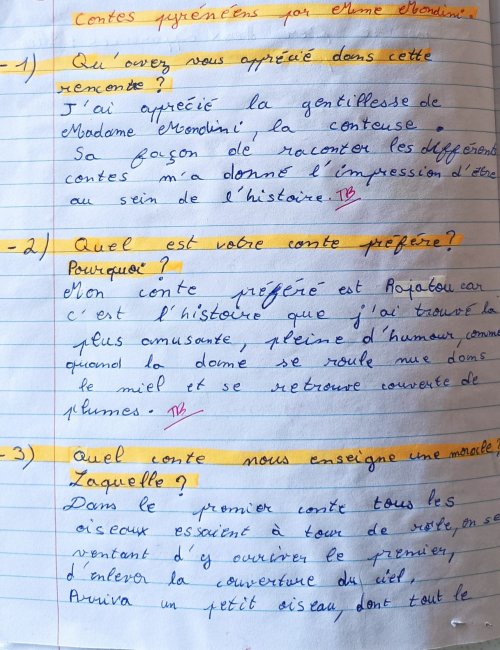 Contes pyrénéens par Mme Mondini.
- 1) Qu'avez vous apprécié dans cette
rencontre ?
J'ai apprécié la gentillesse de
Madame Mondini, la conteuse.
Sa façon de raconter les différents
contes m'a donné l'impression d'être
au sein de l'histoire. TB
- 2) Quel est votre conte préféré ?
Pourquoi ?
Mon conte préféré est Rajatou car
c'est l'histoire que j'ai trouvé la
plus amusante, pleine d'humour, comme
quand la dame se roule nue dans
le miel et se retrouve couverte de
plumes. TB
- 3) Quel conte nous enseigne une morale ?
Laquelle ?
Dans le premier conte tous les
oiseaux essaient à tour de rôle, en se
ventant d'y arriver le premier,
d'enlever la couverture du ciel.
Arriva un petit oiseau, dont tout le